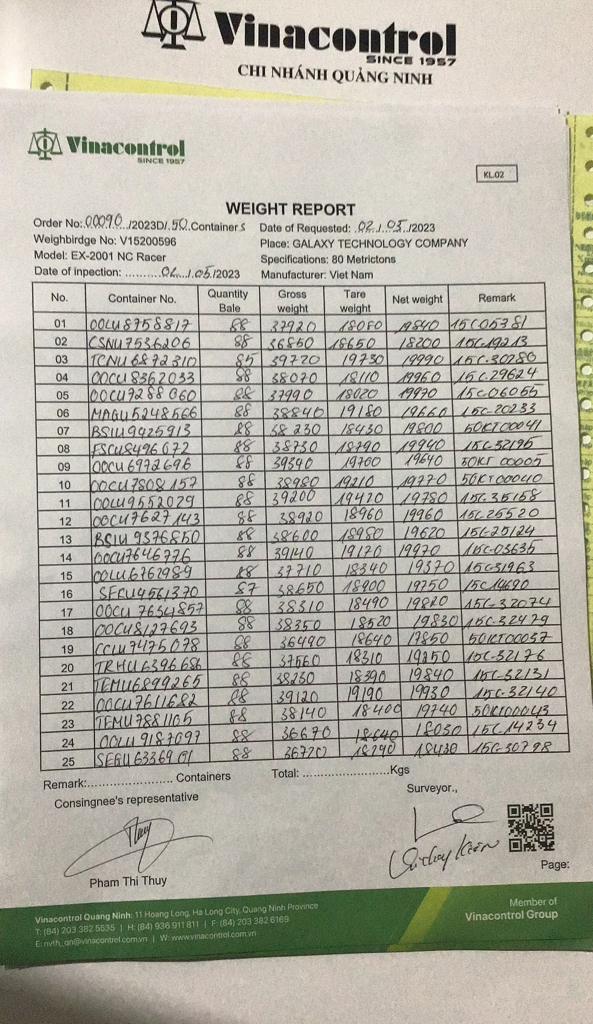 Vinacontrol
SINCE 1957
CHI NHÁNH QUẢNG NINH
Vinacontrol
SINCE 1957
KL.02
WEIGHT REPORT
Order No:.00090./2023D/.50.Containers Date of Requested: 02./.05./2023
Weighbirdge No: V15200596 Place: GALAXY TECHNOLOGY COMPANY
Model: EX-2001 NC Racer Specifications: 80 Metrictons
Date of inpection: ..........02./.05/2023 Manufacturer: Viet Nam
No. Container No. Quantity Bale Gross weight Tare weight Net weight Remark
01 OOLU8758817 88 37920 18080 19840 15C05381
02 CSNU7536206 88 36850 18650 18200 15C-19213
03 TCNU6872310 85 39720 19730 19990 15C-30280
04 OOCU8362033 88 38070 18110 19960 15C-29624
05 OOCU7288060 88 37990 18020 19970 15C-06055
06 MAGU5248566 88 38840 19180 19660 15C-20233
07 BSIU9925913 88 38230 18430 19800 50KT00041
08 FSCU8496072 88 38730 18790 19940 15C-32195
09 OOCU6972696 88 39340 19700 19640 50KT 00005
10 OOCU7808157 88 38980 19210 19770 50KT00040
11 OOLU9552029 88 39200 19420 19780 15C-35158
12 OOCU7627143 88 38920 18960 19960 15C-25520
13 BSIU9376850 88 38600 18980 19620 15C-25124
14 OOCU7646776 88 39140 19170 19970 15C-03635
15 OOLU6762989 88 37710 18340 19370 15C31963
16 SEGU4561370 87 38650 18900 19750 15C14690
17 OOCU 7654857 88 38310 18490 19820 15C-32074
18 OOCU8127693 88 38350 18520 19830 15C-32479
19 CCLU7475078 88 36490 18640 17850 50KT00037
20 TRHU6396686 88 37560 18310 19250 15C-32176
21 TEMU6899265 88 38230 18390 19840 15C-32131
22 OOCU7611682 88 39120 19190 19930 15C-32140
23 TEMU7881105 88 38140 18400 19740 50KT00043
24 OOLU9187097 88 36670 18640 18030 15C14234
25 SEGU6336901 88 36720 18290 18430 15C-30798
Remark:................ Containers Total: .......................Kgs
Consingnee's representative Surveyor.,
Pham Thi Thuy
Page:
Vinacontrol Quang Ninh: 11 Hoang Long, Ha Long City, Quang Ninh Province
T: (84) 203 382 5535 | H: (84) 936 911 811 | F: (84) 203 382 6169
E: nvth_qn@vinacontrol.com.vn | W: www.vinacontrol.com.vn
Member of
Vinacontrol Group